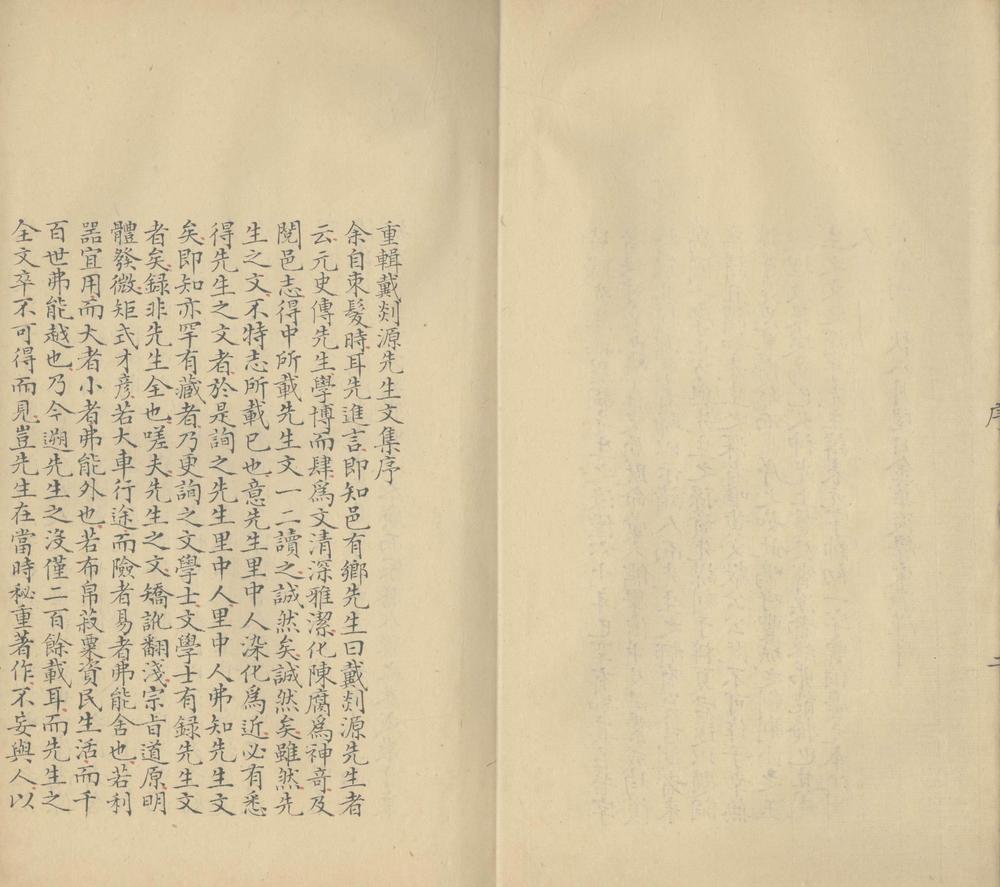 重輯戴剡源先生文集序
余自束髮時耳先進言即知邑有鄉先生曰戴剡源先生者
云元史傳先生學博而肆爲文清深雅潔化陳腐爲神竒及
閱邑志得中所載先生文一二讀之誠然矣誠然矣雖然先
生之文不特志所載已也意先生里中人染化爲近必有悉
得先生之文者於是詢之先生里中人里中人弗知先生文
矣即知亦罕有藏者乃更詢之文學士文學士有録先生文
者矣録非先生全也嗟夫先生之文矯訛翻淺宗旨道原明
體發微矩式才彥若大車行途而險者易者弗能舍也若利
噐宜用而大者小者弗能外也若布帛菽粟資民生活而千
百世弗能越也乃今遡先生之沒僅二百餘載耳而先生之
全文卒不可得而見豈先生在當時秘重著作不妄與人以
序